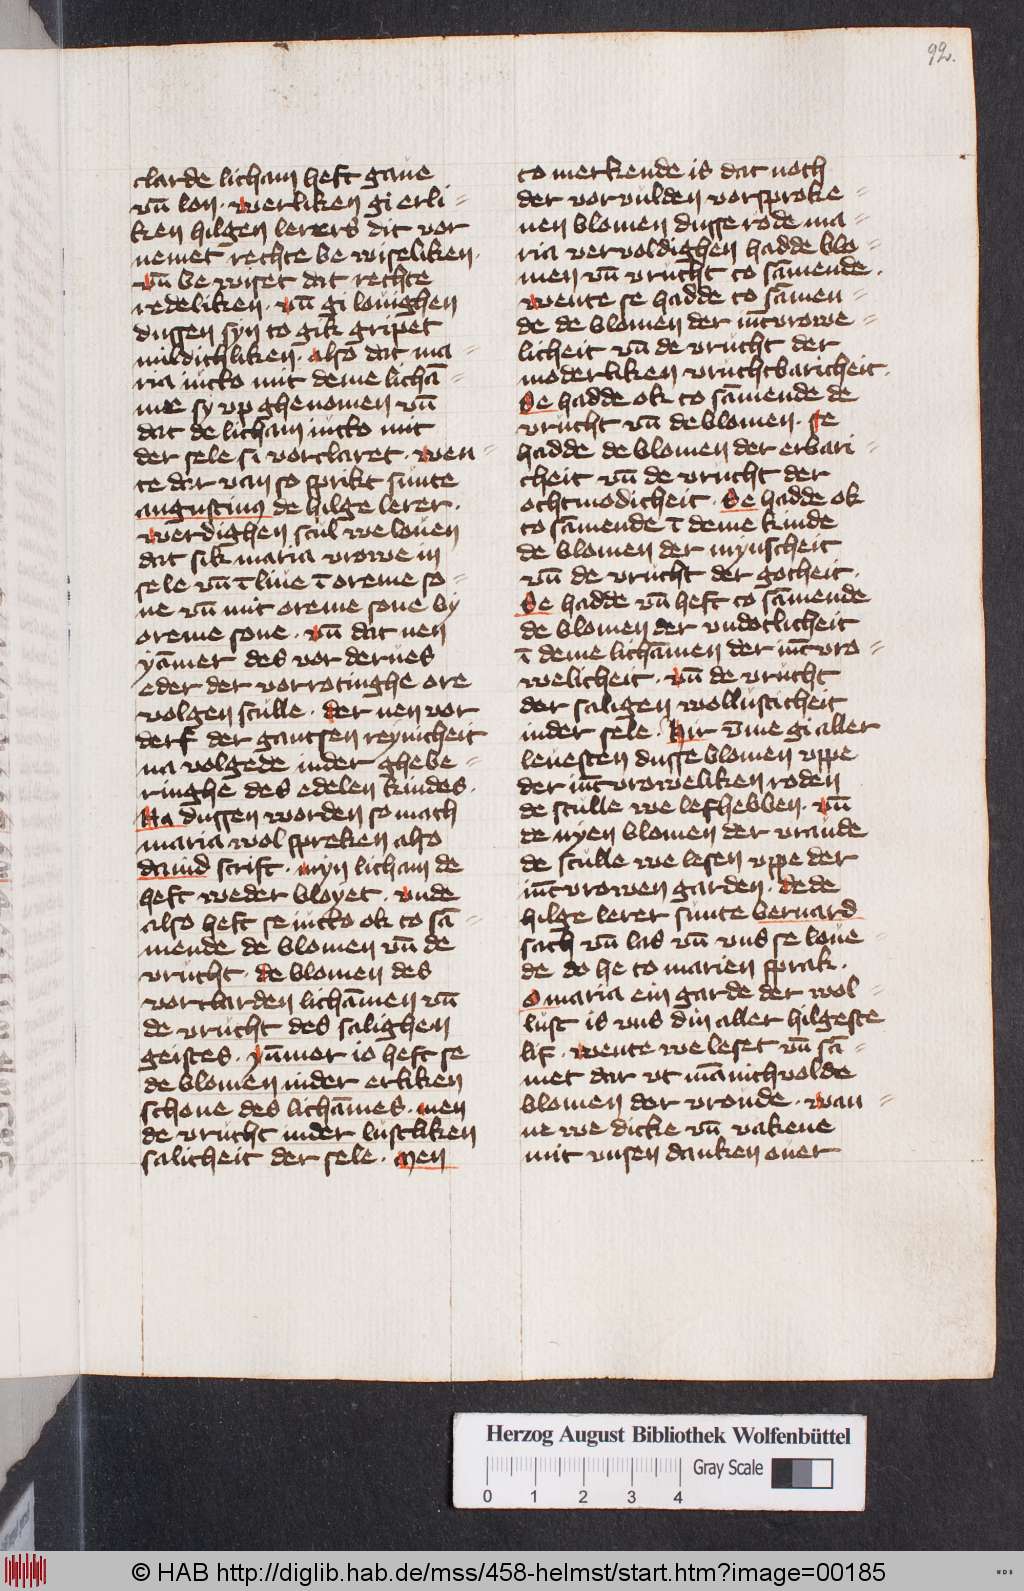 92.
clarde licham heft gaue
vn̄ lon · werliken gi erli=
ken hilgen lerers dit vor
nemet rechte be wiseliken ·
vn̄ be wiset dat rechte
redeliken · vn̄ gi louighen
dussen syn to gik gripet
also dat ma=
ria iucko mit deme lichā=
me sy vp ghenomen vn̄
dat de licham iucko mit
der sele si vorclaret · wen=
te dar van so sprikt sunte
augustinus de hilge lerer ·
werdighen scul we louen
dat sik maria vrowe in
sele vn̄ ī liue ī oreme so=
ne vn̄ mit oreme sone by
oreme sone · vn̄ dat nen
yāmer des vor derues
eder der vorrotinghe ore
volgen sculle · der nen vor
derf der gantsen reynicheit
na volgede inder ghebe=
ringhe des edelen kindes ·
Na dussen worden so mach
maria wol spreken also
dauid scrift · myn licham de
heft weder bloyet · vnde
also heft se iucko ok to sā=
mende de blomen vn̄ de
vrucht · de blomen des
vorclarden lichāmen vn̄
de vrucht des salighen
geistes · yūmer io heft se
de blomen inder erliken
schone des lichāmes · men
de vrucht inder lustliken
salicheit der sele · Men
to merkende is dat noch
der vorvulden vorsproke=
nen blomen dusse rode ma=
ria vervoldighen hadde blo=
men vn̄ vrucht to sāmende ·
wente se hadde to sāmen=
de de blomen der iūcvrowe=
licheit vn̄ de vrucht der
moderliken vruchtbaricheit ·
Se hadde ok to sāmende de
vrucht vn̄ de blomen · se
hadde de blomen der erbari=
cheit vn̄ de vrucht der
ochtmodicheit · Se hadde ok
to sāmende ī deme kinde
de blomen der mynscheit
vn̄ de vrucht der gotheit ·
Se hadde vn̄ heft to sāmende
de blomen der vndotlicheit
ī deme lichāmen der iūcvro=
welicheit · vn̄ de vrucht
der saligen wollusticheit
inder sele · Hir vme gi aller
leuesten dusse blomen vppe
der iūcvroweliken roden
de sculle we lefhebben · vn̄
de nyen blomen der vraude
de sculle we lesen vppe der
iūcvrowen garden · de de
hilge lerer sunte bernard
sach vn̄ las vn̄ vns se loue=
de do he to marien sprak ·
O maria ein garde der wol=
lust is vns din aller hilgeste
lif · wente we leset vn̄ sā=
met dar vt mānichvolde
blomen der vroude · wan=
ne we dicke vn̄ vakene
mit vnsen danken ouer
Herzog August Bibliothek Wolfenbüttel
Gray Scale
0 1 2 3 4
© HAB http://diglib.hab.de/mss/458-helmst/start.htm?image=00185